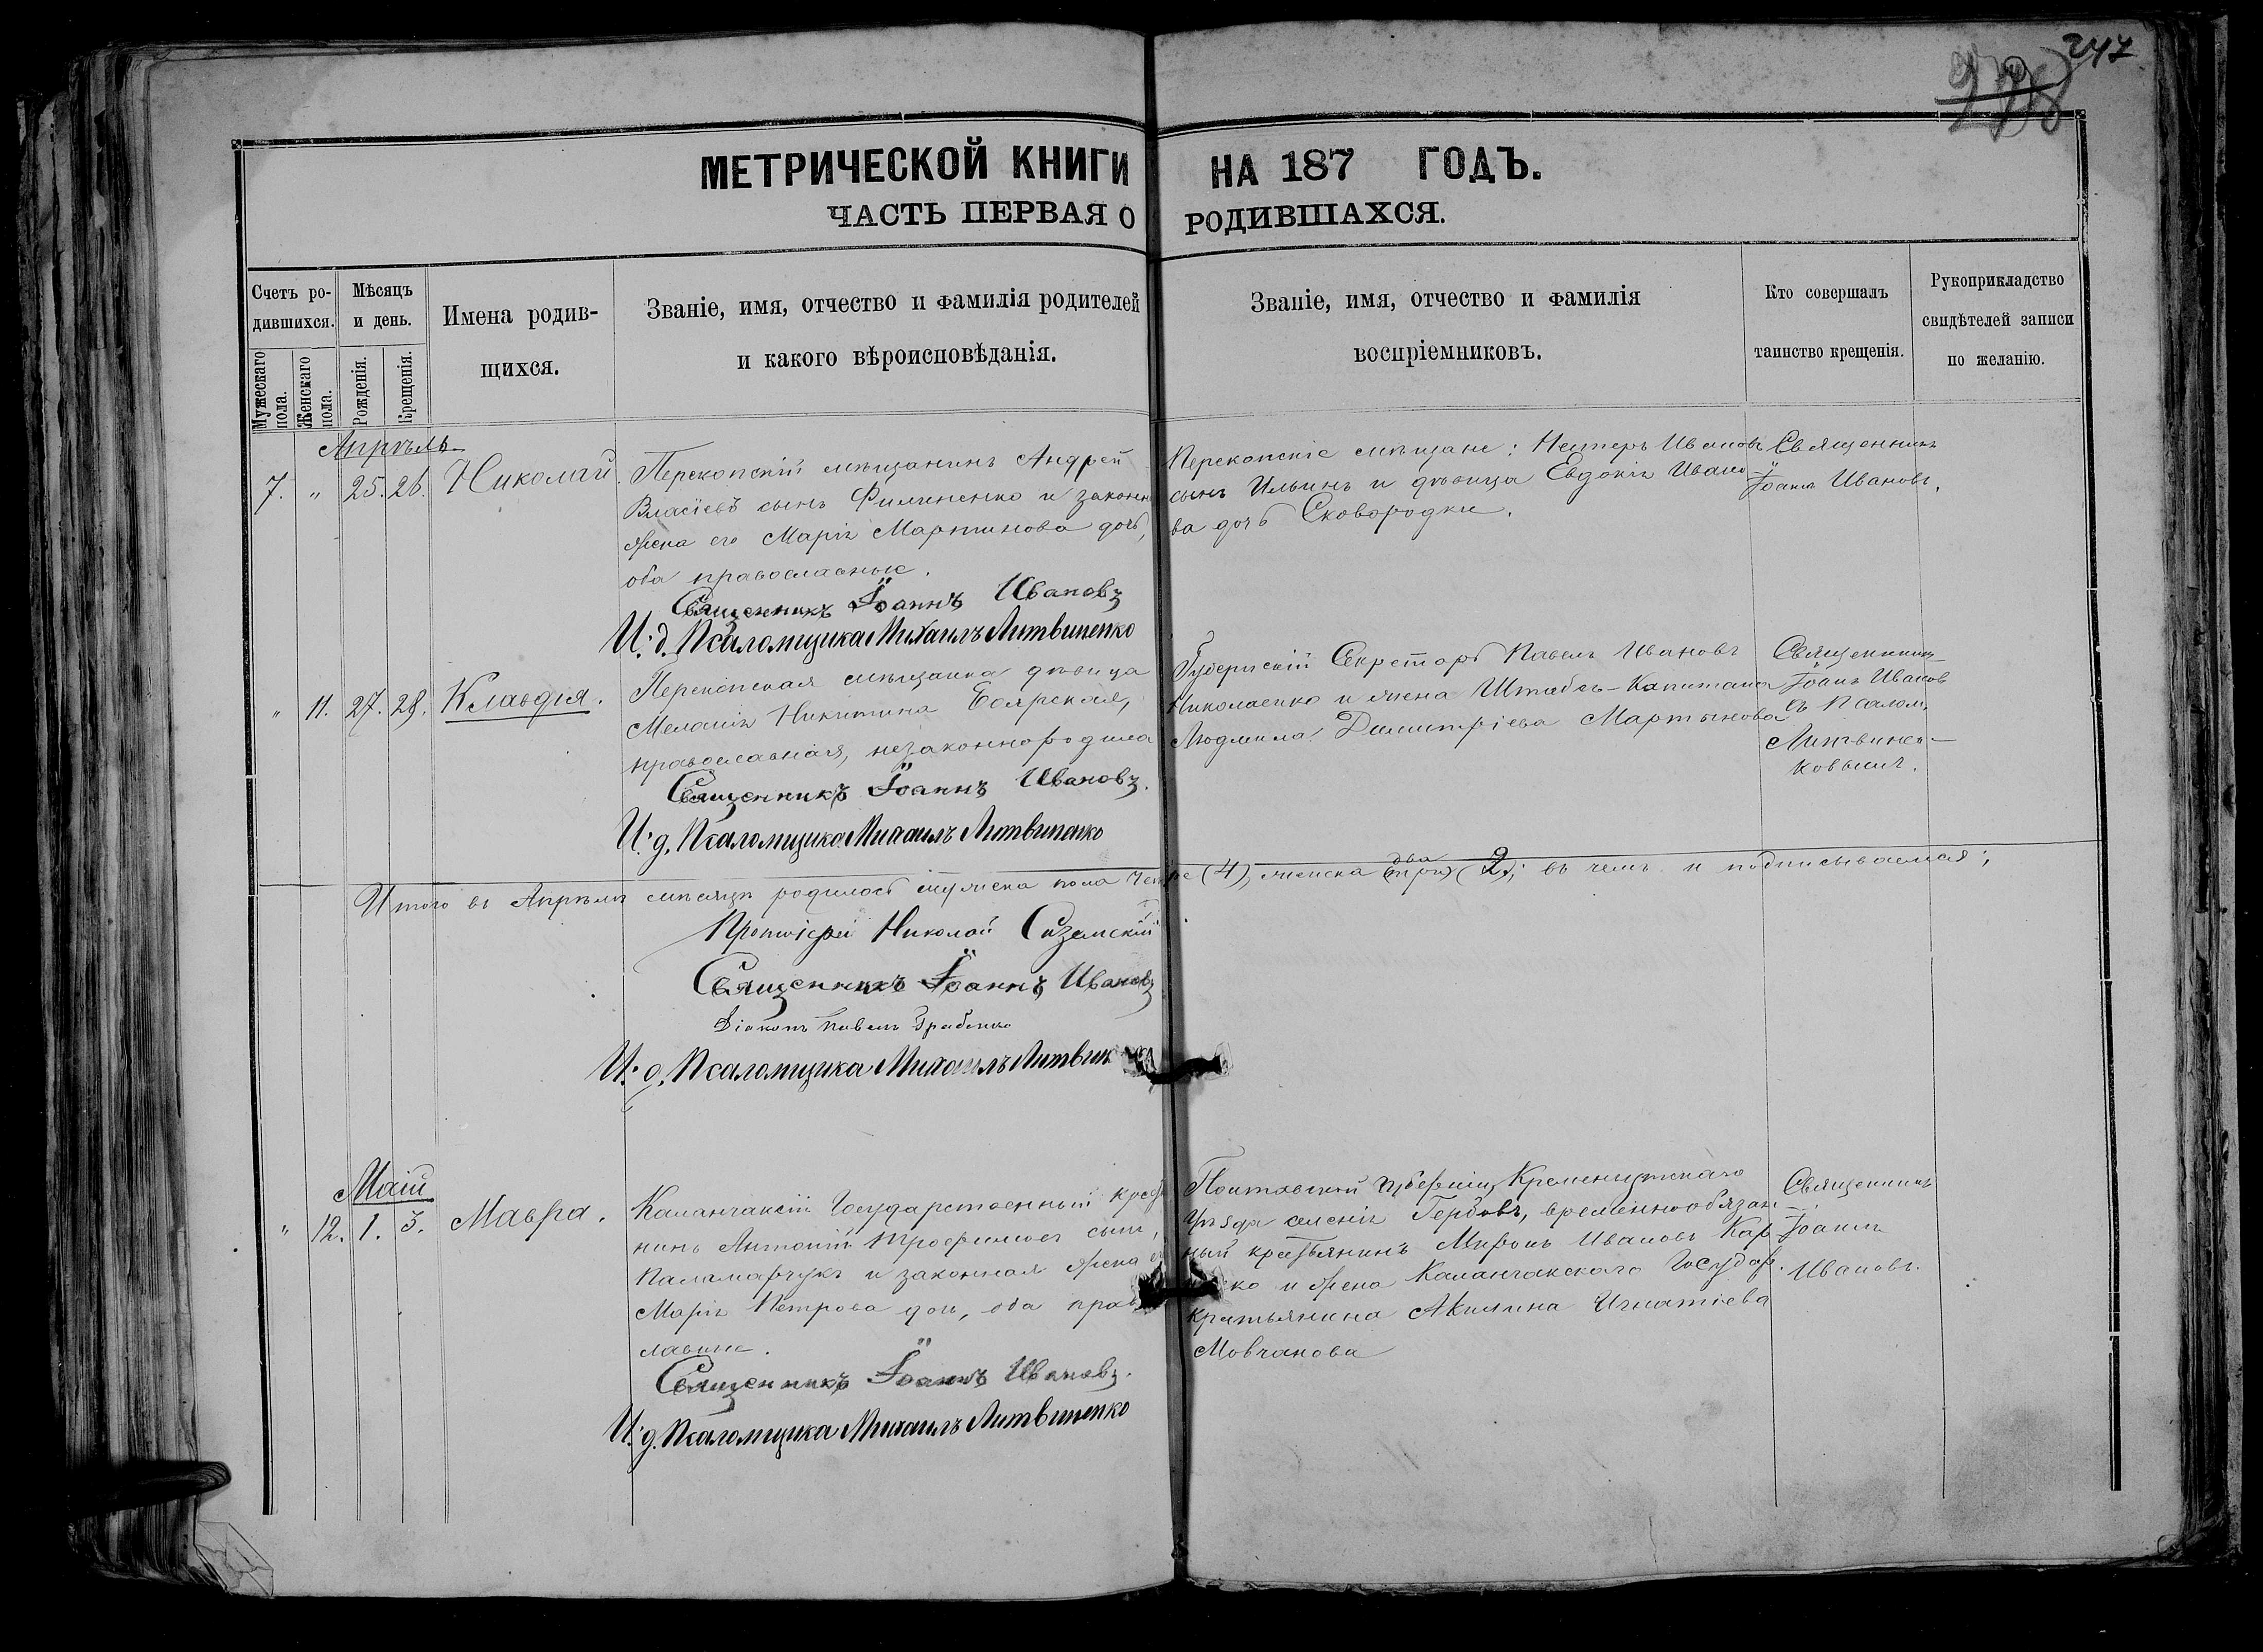 247
МЕТРИЧЕСКОЙ КНИГИ НА 187 ГОДЪ.
ЧАСТЬ ПЕРВАЯ О РОДИВШАХСЯ.
Счетъ ро-
дившихся.
Мужескаго пола.
Женскаго пола.
Мѣсяцъ
и день.
Рожденія.
Крещенія.
Имена родив-
щихся.
Званіе, имя, отчество и фамилія родителей
и какого вѣроисповѣданія.
Званіе, имя, отчество и фамилія
воспріемниковъ.
Кто совершалъ
таинство крещенія.
Рукоприкладство
свидѣтелей записи
по желанію.
Апрѣль
7. " 25. 26. Николай.
Перекопскій мѣщанинъ Андрей
Власіевъ сынъ Филиненко и законн
жена его Марія Мартинова дочь,
оба православные.
Перекопскіе мѣщане: Нестеръ Ивановъ
сынъ Ильинъ и дѣвица Евдокія Ивано
ва дочь Сковородки.
Священникъ
Іоаннъ Ивановъ.
Священникъ Іоаннъ Ивановъ
И. д. Псаломщика Михаилъ Литвиненко
" 11. 27. 28. Клавдія.
Перекопская мѣщанка дѣвица
Меланія Никитина Боярская,
православная, незаконнородила
Губернскій Секретарь Павелъ Ивановъ
Николаенко и жена Штабсъ-Капитана
Людмила Димитріева Мартынова
Священникъ
Іоаннъ Иванов
съ Псалом.
Литвинен-
ковымъ.
Священникъ Іоаннъ Ивановъ.
И. д. Псаломщика Михаилъ Литвиненко
Итого въ Апрѣлѣ мѣсяцѣ родилось мужеска пола четыре (4), женска (три) два (2); въ чемъ и подписываемся;
Протоіерей Николай Сиземскій
Священникъ Іоаннъ Ивановъ
Діаконъ Павелъ Грабенко
И. д. Псаломщика Михаилъ Литвин
Маій
" 12. 1. 3. Мавра.
Каланчакскій Государственный крестья
нинъ Антоній Трофимовъ сынъ,
Паламарчукъ и законная жена его
Марія Петрова дочь, оба право
славные.
Полтавской губерніи, Кременчугскаго
уѣзда селенія Гербовъ, временнообязан
ный крестьянинъ Миронъ Ивановъ Кар
ко и жена Каланчакскаго Государ.
крестьянина Акилина Игнатіева
Мовчанова
Священникъ
Іоаннъ
Ивановъ.
Священникъ Іоаннъ Ивановъ.
И. д. Псаломщика Михаилъ Литвиненко